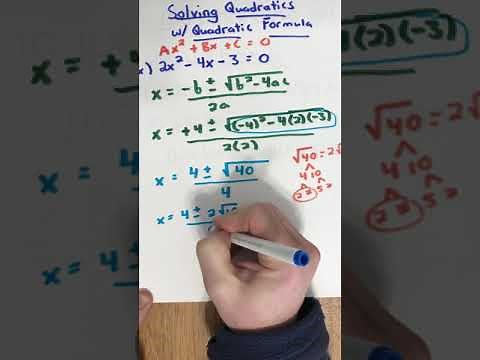 Solving Quadratics
w/ Quadratic Formula
Ax² + Bx + C = 0
x) 2x² - 4x - 3 = 0
x = -b ± √b² - 4ac / 2a
x = +4 ± √(-4)² - 4(2)(-3) / 2(2)
x = 4 ± √40 / 4
x = 4 ± 2√
√40 = 2√
√40 = 2√
4 10
2 2 5 2